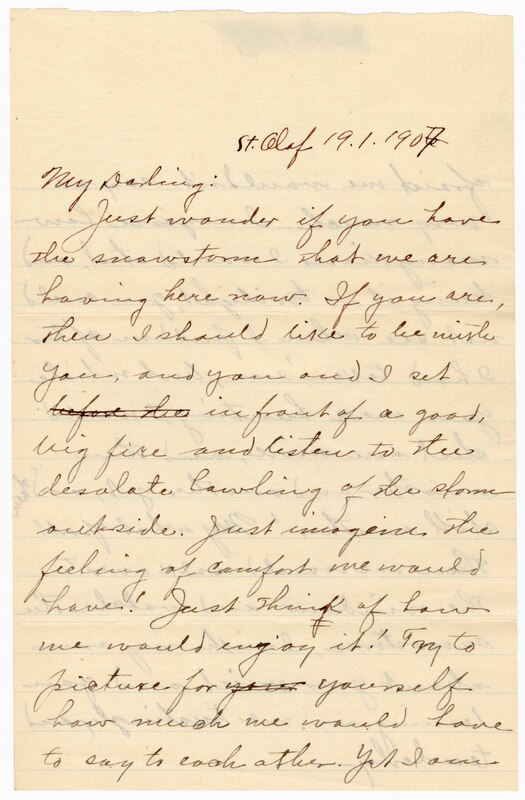 St. Olaf 19.1.1907
My Darling:
Just wonder if you have
the snowstorm that we are
having here now. If you are,
then I should like to be with
you, and you and I set
before the in front of a good,
big fire and listen to the
desolate howling of the storm
outside. Just imagene the
feeling of comfort we would
have! Just think of how
we would enjoy it! Try to
picture for your yourself
how much we would have
to say to each other. Yet I am